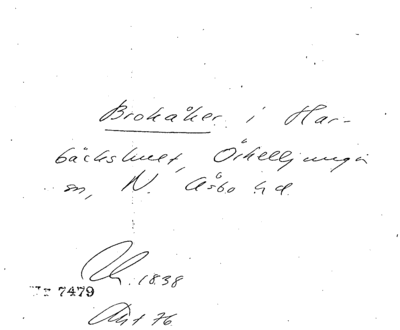 Brohåker i Har-
bäckshult, Örkelljunga
sn, N. Åsbo hd.
1838
Nr 7479
Akt 76